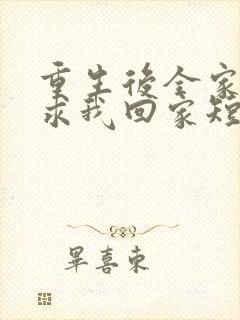 重生後全家
求我回家短
畢喜東